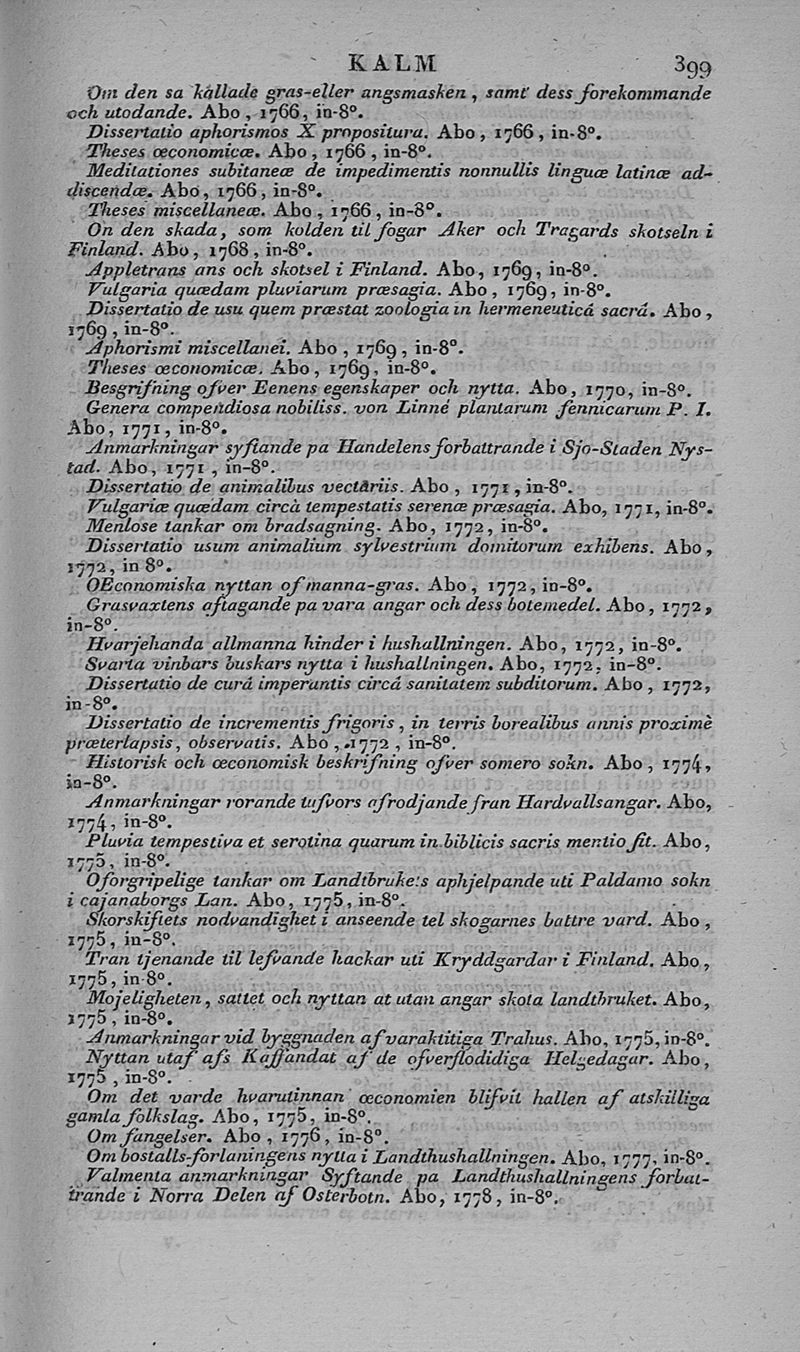 KALM 399
Om den sa kallade gras-eller angsmasken, samt' dess forekommande
och utodande. Abo, 1766, in-8°.
Dissertatio aphorismos X propositura. Abo, 1766, in-8°.
Theses œconomicæ. Abo, 1766, in-8°.
Meditationes subitaneæ de impedimentis nonnullis linguæ latinæ ad-
discendæ. Abo, 1766, in-8°.
Theses miscellaneæ. Abo, 1766, in-8°.
On den skada, som kolden til fogar Aker och Tragards skotseln i
Finland. Abo, 1768, in-8°.
Appletrans ans och skotsel i Finland. Abo, 1769, in-8°.
Vulgaria quædam pluviarum præsagia. Abo, 1769, in-8°.
Dissertatio de usu quem præstat zoologia in hermeneuticâ sacrâ. Abo,
1769, in-8°.
Aphorismi miscellanei. Abo, 1769, in-8°.
Theses œconomicæ. Abo, 1769, in-8°.
Besgrifning ofver Eenens egenskaper och nytta. Abo, 1770, in-8°.
Genera compendiosa nobiliss. von Linné plantarum fennicarum P. I.
Abo, 1771, in-8°.
Anmarkningar syftande pa Handelens forbattrande i Sjo-Staden Nys-
tad. Abo, 1771, in-8°.
Dissertatio de animalibus vectariis. Abo, 1771, in-8°.
Vulgariæ quædam circà tempestatis serenæ præsagia. Abo, 1771, in-8°.
Menlose tankar om bradsagning. Abo, 1772, in-8°.
Dissertatio usum animalium sylvestrium domitorum exhibens. Abo,
1772, in 8°.
OEconomiska nyttan of manna-gras. Abo, 1772, in-8°.
Grasvaxtens aftagande pa vara angar och dess botemedel. Abo, 1772,
in-8°.
Hvarjehanda allmanna hinder i hushallningen. Abo, 1772, in-8°.
Svarta vinbars buskars nytta i hushallningen. Abo, 1772, in-8°.
Dissertatio de curâ imperantis circâ sanitatem subditorum. Abo, 1772,
in-8°.
Dissertatio de incrementis frigoris, in terris borealibus annis proximè
præterlapsis, observatis. Abo, 1772, in-8°.
Historisk och œconomisk beskrifning ofver somero sokn. Abo, 1774,
in-8°.
Anmarkningar rorande tufvors afrodjande fran Hardvallsangar. Abo,
1774, in-8°.
Pluvia tempestiva et serotina quarum in biblicis sacris mentio fit. Abo,
1775, in-8°.
Oforgripelige tankar om Landtbrukets aphjelpande uti Paldamo sokn
i cajanaborgs Lan. Abo, 1775, in-8°.
Skorskifiets nodvandighet i anseende tel skogarnes battre vard. Abo,
1775, in-8°.
Tran tjenande til lefvande hackar uti Kryddgardar i Finland. Abo,
1775, in-8°.
Mojeligheten, sattet och nyttan at utan angar skota landtbruket. Abo,
1775, in-8°.
Anmarkningar vid byggnaden af varaktitiga Trahus. Abo, 1775, in-8°.
Nyttan utaf afs Kaffandat af de ofverflodidiga Helgedagar. Abo,
1775, in-8°.
Om det varde hvarutinnan œconomien blifvit hallen af atskilliga
gamla folkslag. Abo, 1775, in-8°.
Om fangelser. Abo, 1776, in-8°.
Om bostalls-forlaningens nytta i Landthushallningen. Abo, 1777, in-8°.
Valmenta anmarkningar Syftande pa Landthushallningens forbat-
trande i Norra Delen af Osterbotn. Abo, 1778, in-8°.